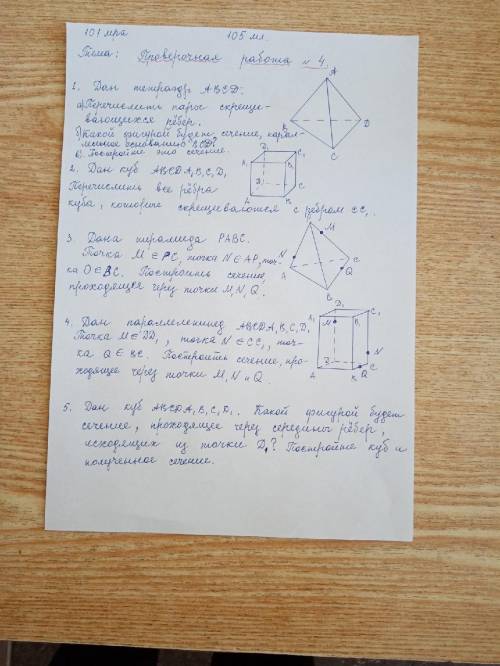 101 мра 105 мл.
Тема: Проверочная работа N 4.
1. Дан тетраэдр ABCD.
а) Перечислить пары скрещи-
вающихся рёбер.
б) Какой фигурой будет сечение, парал-
лельное основанию BCD?
в) Постройте это сечение.
A
B
D
C
2. Дан куб ABCDA₁B₁C₁D₁
Перечислить все рёбра
куба, которые скрещиваются с ребром CC₁.
D₁
C₁
A₁
B₁
D
C
A
B
3. Дана пирамида PABC.
Точка M ∈ PC, точка N ∈ AP, точ-
ка Q ∈ BC. Построить сечение,
проходящее через точки M, N, Q.
M
N
C
Q
A
B
4. Дан параллелепипед ABCDA₁B₁C₁D₁
Точка M ∈ DD₁, точка N ∈ CC₁, точ-
ка Q ∈ BC. Построить сечение, про-
ходящее через точки M, N и Q.
D₁
C₁
A₁
B₁
M
N
D
C
Q
A
B
5. Дан куб ABCDA₁B₁C₁D₁. Какой фигурой будет
сечение, проходящее через середины рёбер,
исходящих из точки D₁? Постройте куб и
полученное сечение.